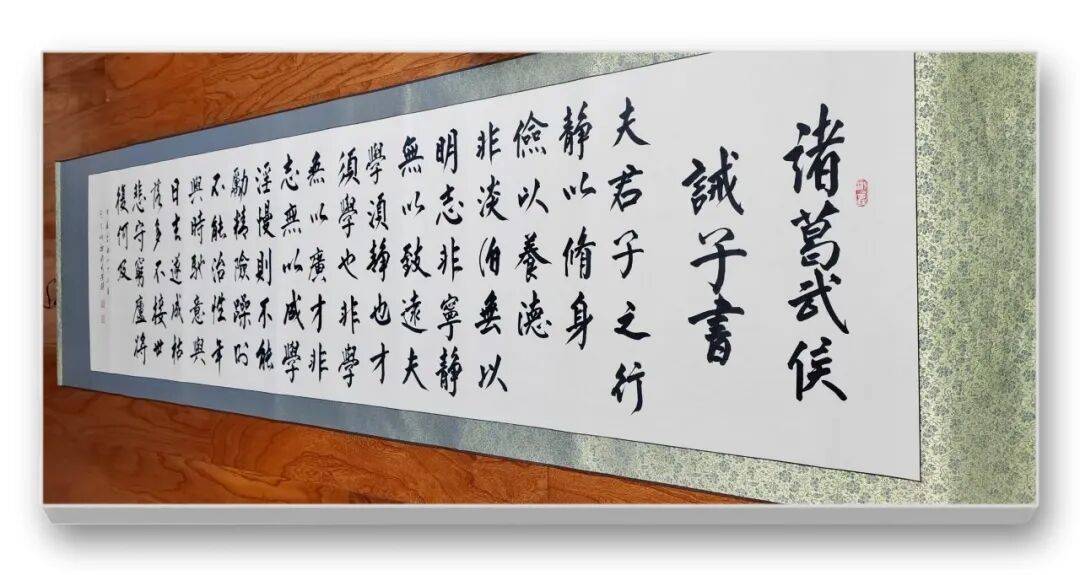 诸葛武侯
誡子書
夫君子之行
静以脩身
儉以養德
非淡泊無以
明志非寧静
無以致遠夫
學須静也才
須學也非學
無以廣才非
志無以成學
淫慢則不能
勵精險躁則
不能治性年
與時馳意與
日去遂成枯
落多不接世
悲守窮廬將
復何及